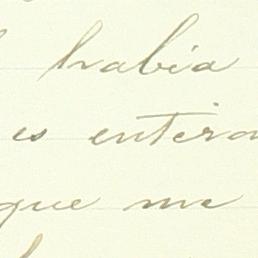 había
es entera
que me